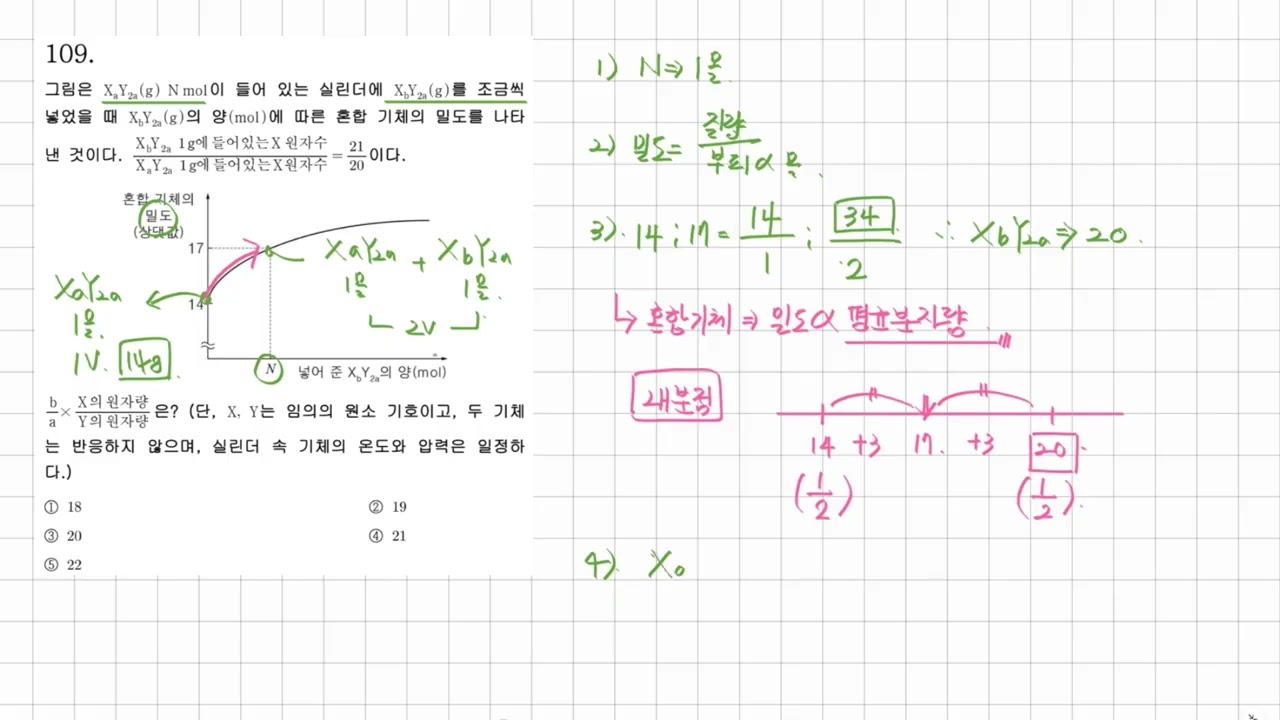 109.
그림은 XaY2a(g) N mol이 들어 있는 실린더에 XbY2a(g)를 조금씩
넣었을 때 XbY2a(g)의 양(mol)에 따른 혼합 기체의 밀도를 나타
낸 것이다. XbY2a 1g에 들어있는 X 원자수 / XaY2a 1g에 들어있는 X 원자수 = 21/20 이다.
혼합 기체의
밀도
(상댓값)
17
14
N
넣어 준 XbY2a의 양(mol)
XaY2a
1몰.
1V. 14g
XaY2a + XbY2a
1몰 1몰.
2V
b/a × X의 원자량/Y의 원자량 은? (단, X, Y는 임의의 원소 기호이고, 두 기체
는 반응하지 않으며, 실린더 속 기체의 온도와 압력은 일정하
다.)
① 18
② 19
③ 20
④ 21
⑤ 22
1) N ⇒ 1몰.
2) 밀도 = 질량 / 부피 ∝ 몰.
3) 14 ; 17 = 14/1 ; 34/2 ∴ XbY2a ⇒ 20.
↳ 혼합기체 ⇒ 밀도 ∝ 평균분자량
내분점
14 +3 17. +3 20.
(1/2) (1/2).
4) X